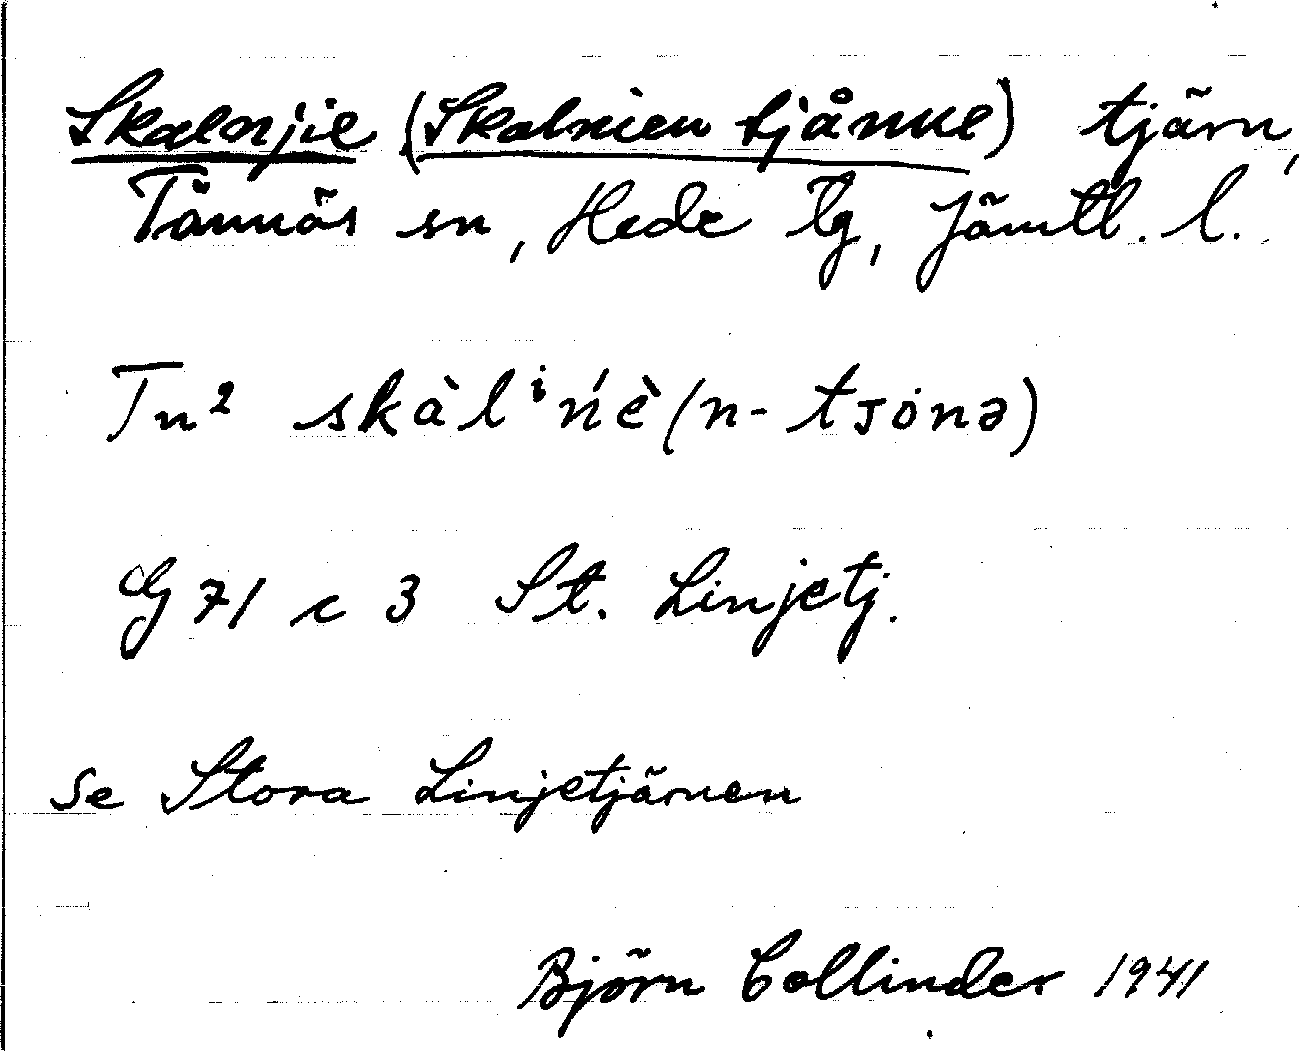 Skalnjie (Skalnien tjånue) tjärn,
Tännäs sn, Hede tg, Jämtl. l.
Tn² skàlⁱńè (n- tjȯnə)
G 71 c 3 St. Linjetj.
se Stora Linjetjärnen
Björn Collinder 1941